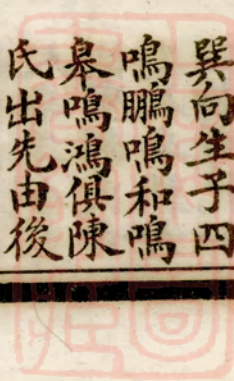 巽向生子四
鳴鵬鳴和鳴
皋鳴鴻俱陳
氏出先由後